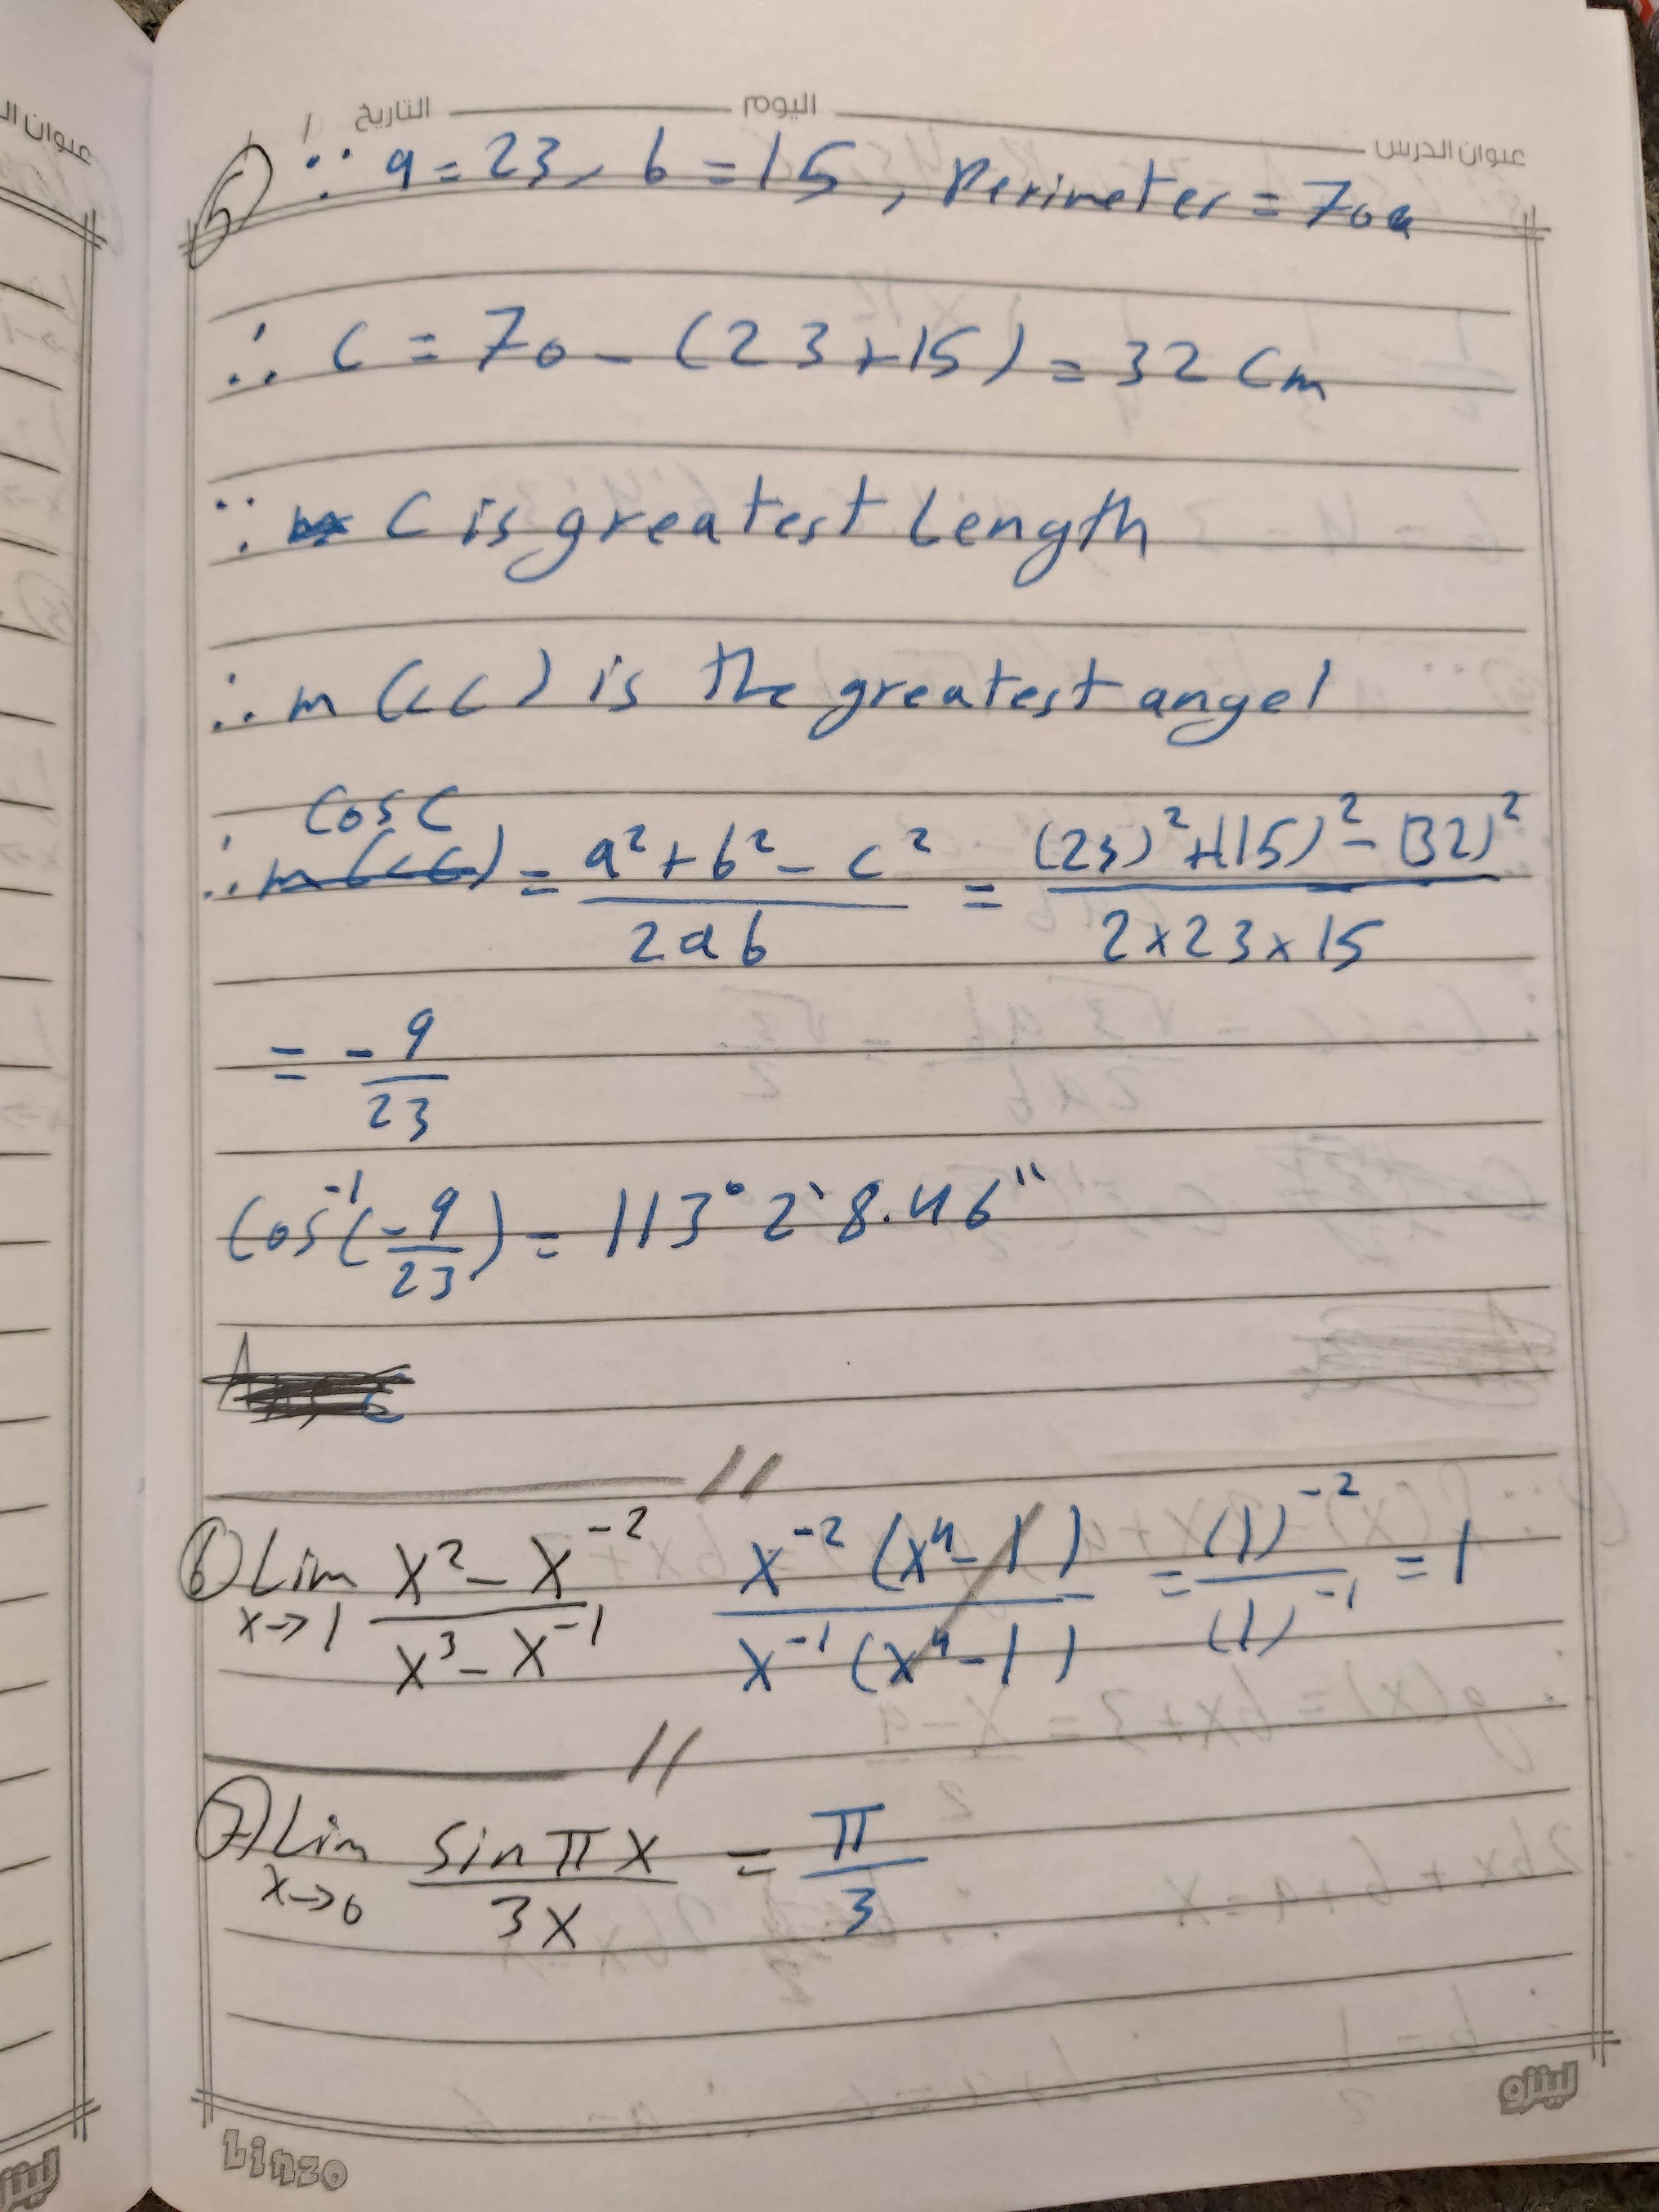 عنوان الدرس اليوم التاريخ / /
5) ∵ a = 23, b = 15, Perimeter = 70
∴ c = 70 - (23+15) = 32 Cm
∵ C is greatest Length
∴ m(<C) is the greatest angel
Cos C
∴ m(<C) = a² + b² - c² / 2ab = (23)² + (15)² - (32)² / 2×23×15
= - 9/23
Cos⁻¹(-9/23) = 113° 2` 8.46"
6) Lim x→1 x² - x⁻² / x³ - x⁻¹ x⁻² (x⁴-1) / x⁻¹ (x⁴-1) = (1)⁻² / (1)⁻¹ = 1
7) Lim x→0 Sin πx / 3x = π/3
Linzo لينزو